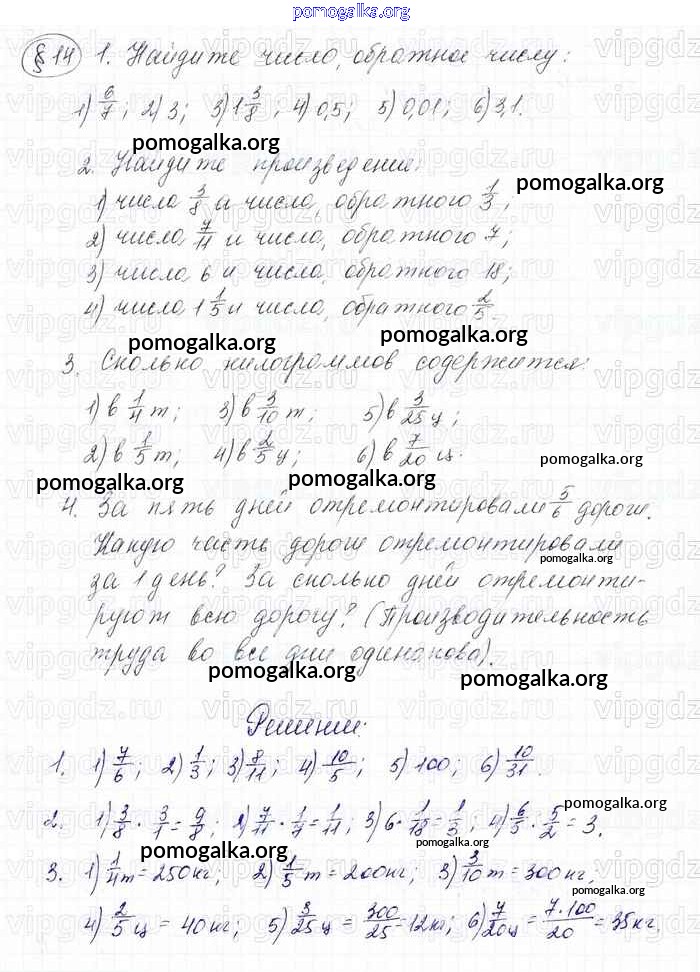 pomogalka.org
§ 14 1. Найдите число, обратное числу:
1) 6/7; 2) 3; 3) 1 3/8; 4) 0,5; 5) 0,01; 6) 3,1.
pomogalka.org
2. Найдите произведение:
pomogalka.org
1) числа 3/8 и числа, обратного 1/3;
2) числа 7/11 и числа, обратного 7;
3) числа 6 и числа, обратного 18;
4) числа 1 1/5 и числа, обратного 2/5.
pomogalka.org
pomogalka.org
3. Сколько килограммов содержится:
1) в 1/4 т; 3) в 3/10 т; 5) в 3/25 ц;
2) в 1/5 т; 4) в 2/5 ц; 6) в 7/20 ц.
pomogalka.org
pomogalka.org
pomogalka.org
4. За пять дней отремонтировали 5/6 дороги.
Какую часть дороги отремонтировали
pomogalka.org
за 1 день? За сколько дней отремонти-
руют всю дорогу? (Производительность
труда во все дни одинакова).
pomogalka.org
pomogalka.org
Решение:
1. 1) 7/6; 2) 1/3; 3) 8/11; 4) 10/5; 5) 100; 6) 10/31.
pomogalka.org
2. 1) 3/8 · 3/1 = 9/8; 2) 7/11 · 1/7 = 1/11; 3) 6 · 1/18 = 1/3; 4) 6/5 · 5/2 = 3.
pomogalka.org
3. 1) 1/4 т = 250 кг; 2) 1/5 т = 200 кг; 3) 3/10 т = 300 кг;
pomogalka.org
4) 2/5 ц = 40 кг; 5) 3/25 ц = 300/25 = 12 кг; 6) 7/20 ц = 7·100/20 = 35 кг.